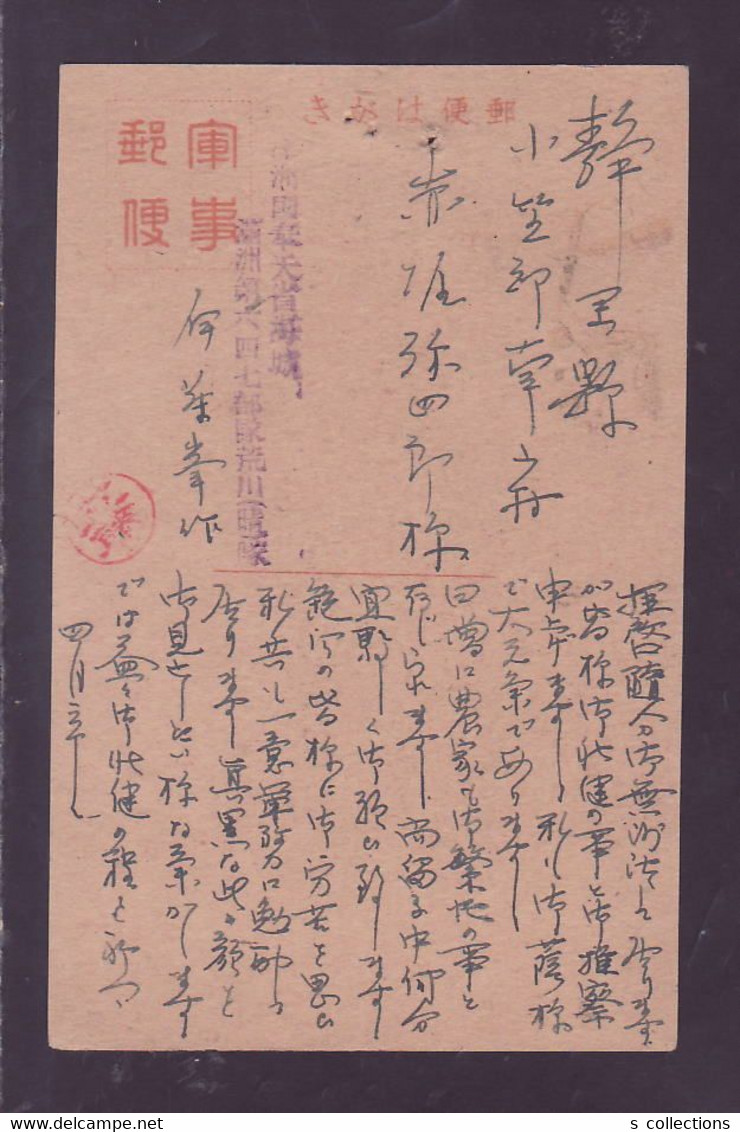 郵便はがき
軍事
郵便
静岡県
小笠郡南山村
赤堀弥四郎様
満洲国奉天省海城
満洲第六四七部隊荒川(晴)隊
伊藤峯作
拝啓随分御無沙汰して居ります
が皆様御壮健の事と御推察
申上げます 私も御蔭様
で大元気であります
日増に農家も御繁忙の事と
存じられます 尚留守中何分
宜敷く御願ひ致します
銃後の皆様に御労苦を思ひ
私共も一意軍務に勉励して
居ります 真黒な此の顔を
御見せしたい様な気がします
では益々御壮健の程を祈りつゝ
四月
s collections